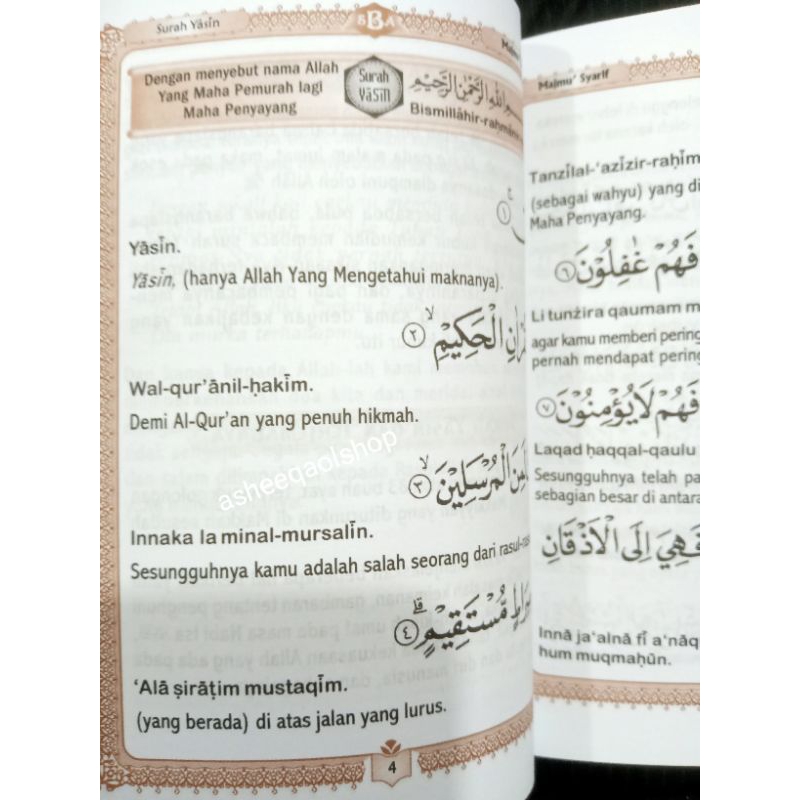 Surah Yāsīn
BBA
Dengan menyebut nama Allah
Yang Maha Pemurah lagi
Maha Penyayang
Surah
Yāsīn
بِسْمِ اللهِ الرَّحْمٰنِ الرَّحِيْمِ
Bismillāhir-raḥmān
١
Yāsīn.
Yāsīn, (hanya Allah Yang Mengetahui maknanya).
الْحَكِيْمِ ٢
Wal-qur’ānil-ḥakīm.
Demi Al-Qur’an yang penuh hikmah.
الْمُرْسَلِيْنَ ٣
Innaka la minal-mursalīn.
Sesungguhnya kamu adalah salah seorang dari rasul-
مُّسْتَقِيْمٍ ٤
‘Alā ṣirāṭim mustaqīm.
(yang berada) di atas jalan yang lurus.
4
asheeqaolshop
Majmu’ Syarif
Tanzīlal-‘azīzir-raḥīm
(sebagai wahyu) yang di
Maha Penyayang.
فَهُمْ غٰفِلُوْنَ ٦
Li tunżira qaumam m
agar kamu memberi pering
pernah mendapat pering
فَهُمْ لَا يُؤْمِنُوْنَ ٧
Laqad ḥaqqal-qaulu
Sesungguhnya telah pa
sebagian besar di antara
فَهِيَ اِلَى الْاَذْقَانِ
Innā ja‘alnā fī a‘nāq
hum muqmaḥūn.